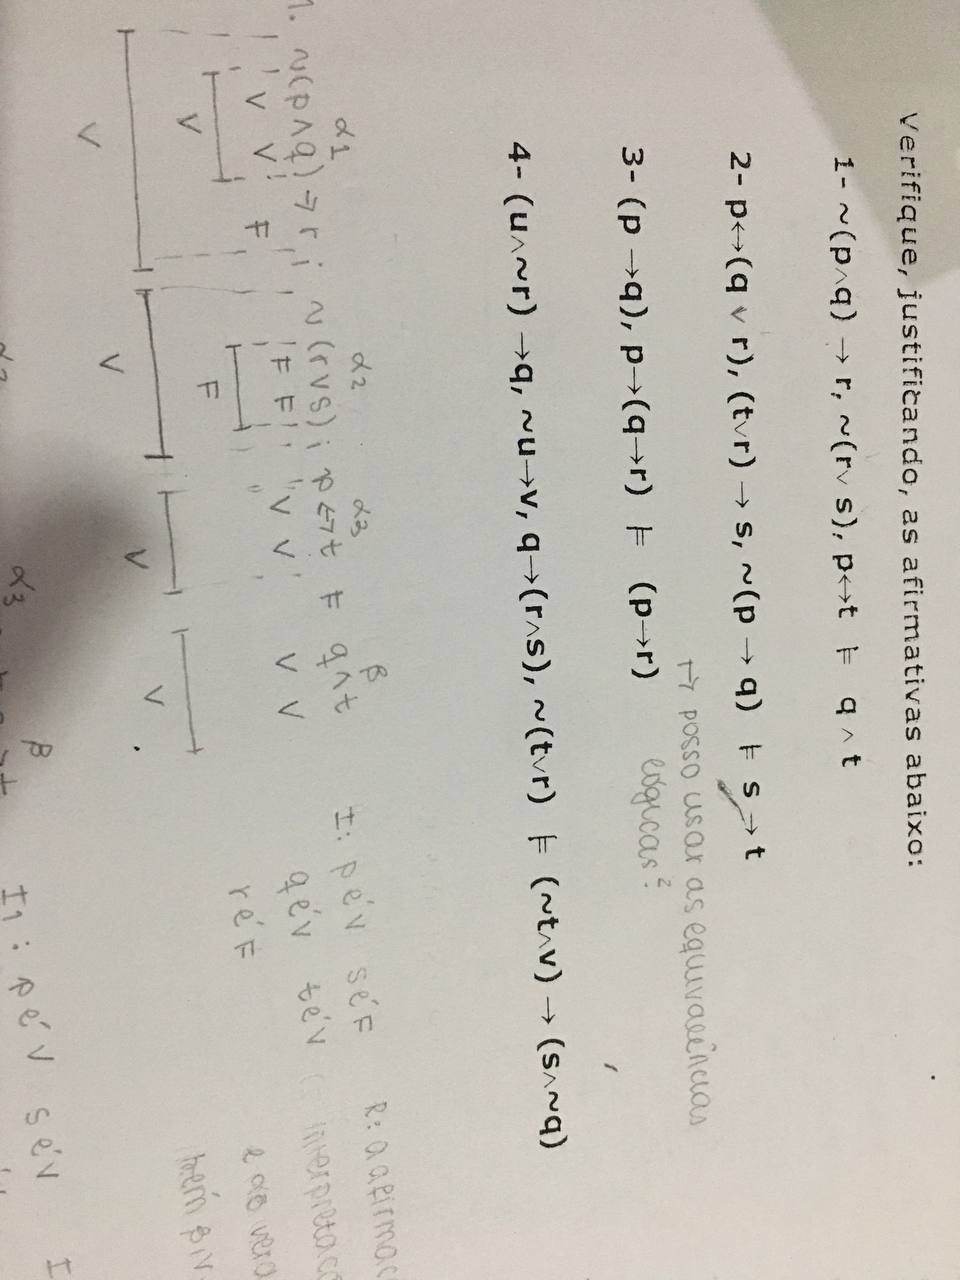 Verifique, justificando, as afirmativas abaixo:
1- ~(p∧q) → r, ~(r∨ s), p↔t ⊨ q ∧ t
2- p↔(q ∨ r), (t∨r) → s, ~(p → q) ⊨ s → t
↳ posso usar as equivalências
lógicas?
3- (p →q), p→(q→r) ⊨ (p→r)
4- (u∧~r) →q, ~u→v, q→(r∧s), ~(t∨r) ⊨ (~t∧v) → (s∧~q)
α1 α2 α3 β
1. ~(p∧q) → r ; ~(r∨s) ; p↔t ⊨ q∧t
V V F F F V V V V
V F
V V V V
I: p é V s é F
q é V t é V
r é F
R: a afirmac
interpretac
e ao verd
tem
α3 β
I1: p é V s é V I